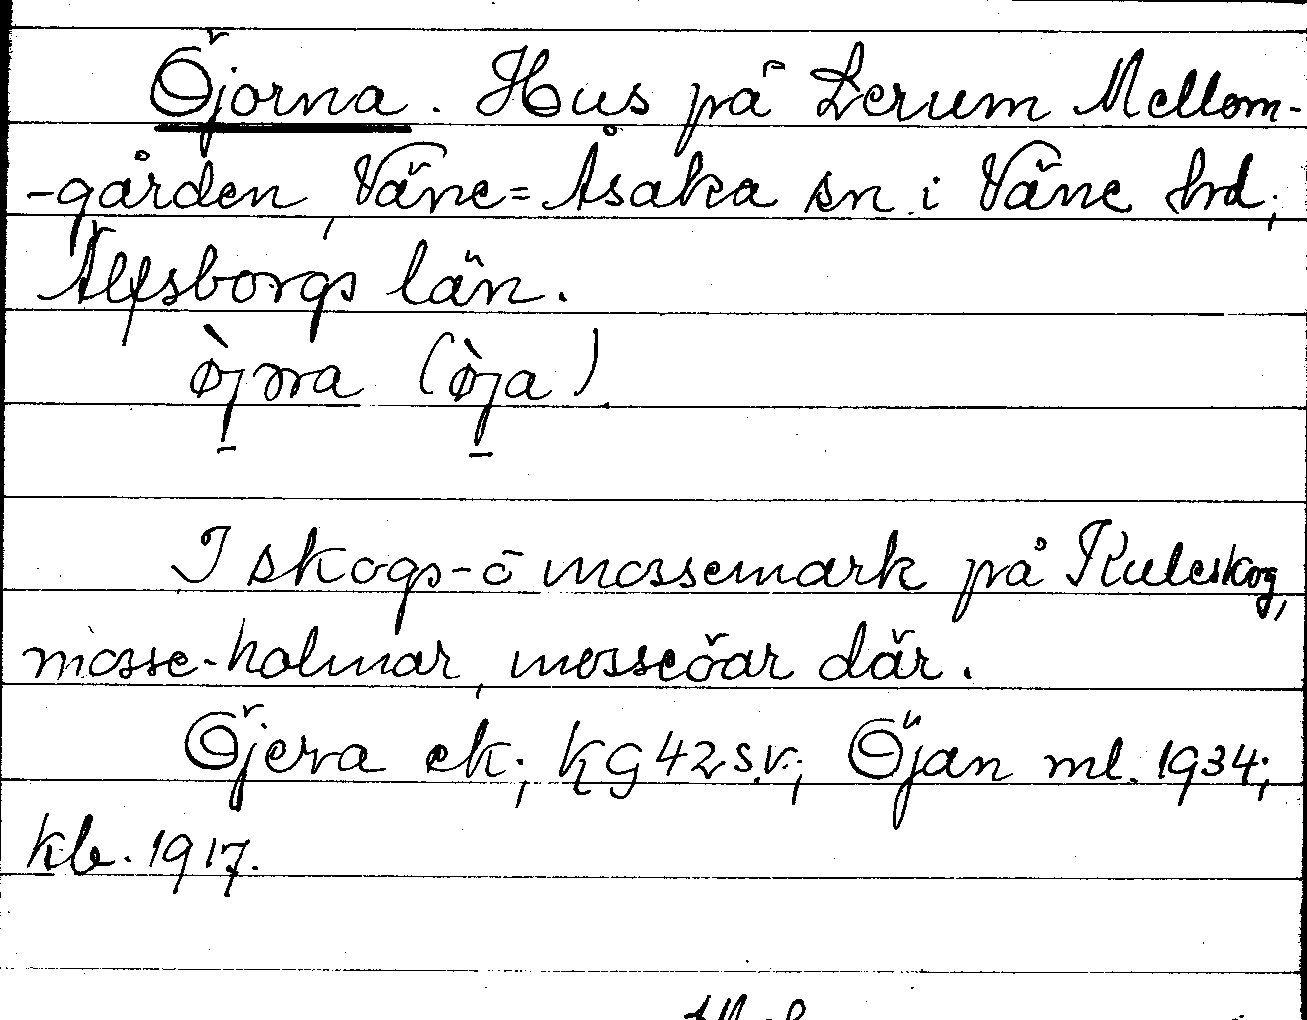 Öjorna. Hus på Lerum Mellom-
-gården, Väne=Åsaka sn i Väne hrd,
Älfsborgs län.
òjra (òja).
I skogs-o mossemark på Kuleskog,
mosse-holmar, mosseöar där.
Öjera ek; KG 42 s.v; Öjan ml. 1934;
kb. 1917.